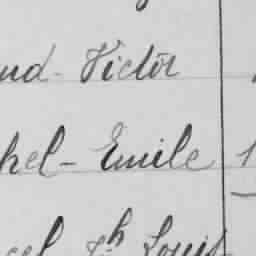 ud - Victor
hel - Emile 1
cel Jh Louis